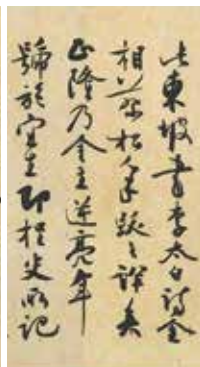 此東坡書李太白詩金
相蔡松年跋之詳矣
正隆乃金主逆亮年
號於宣主即桯史所記